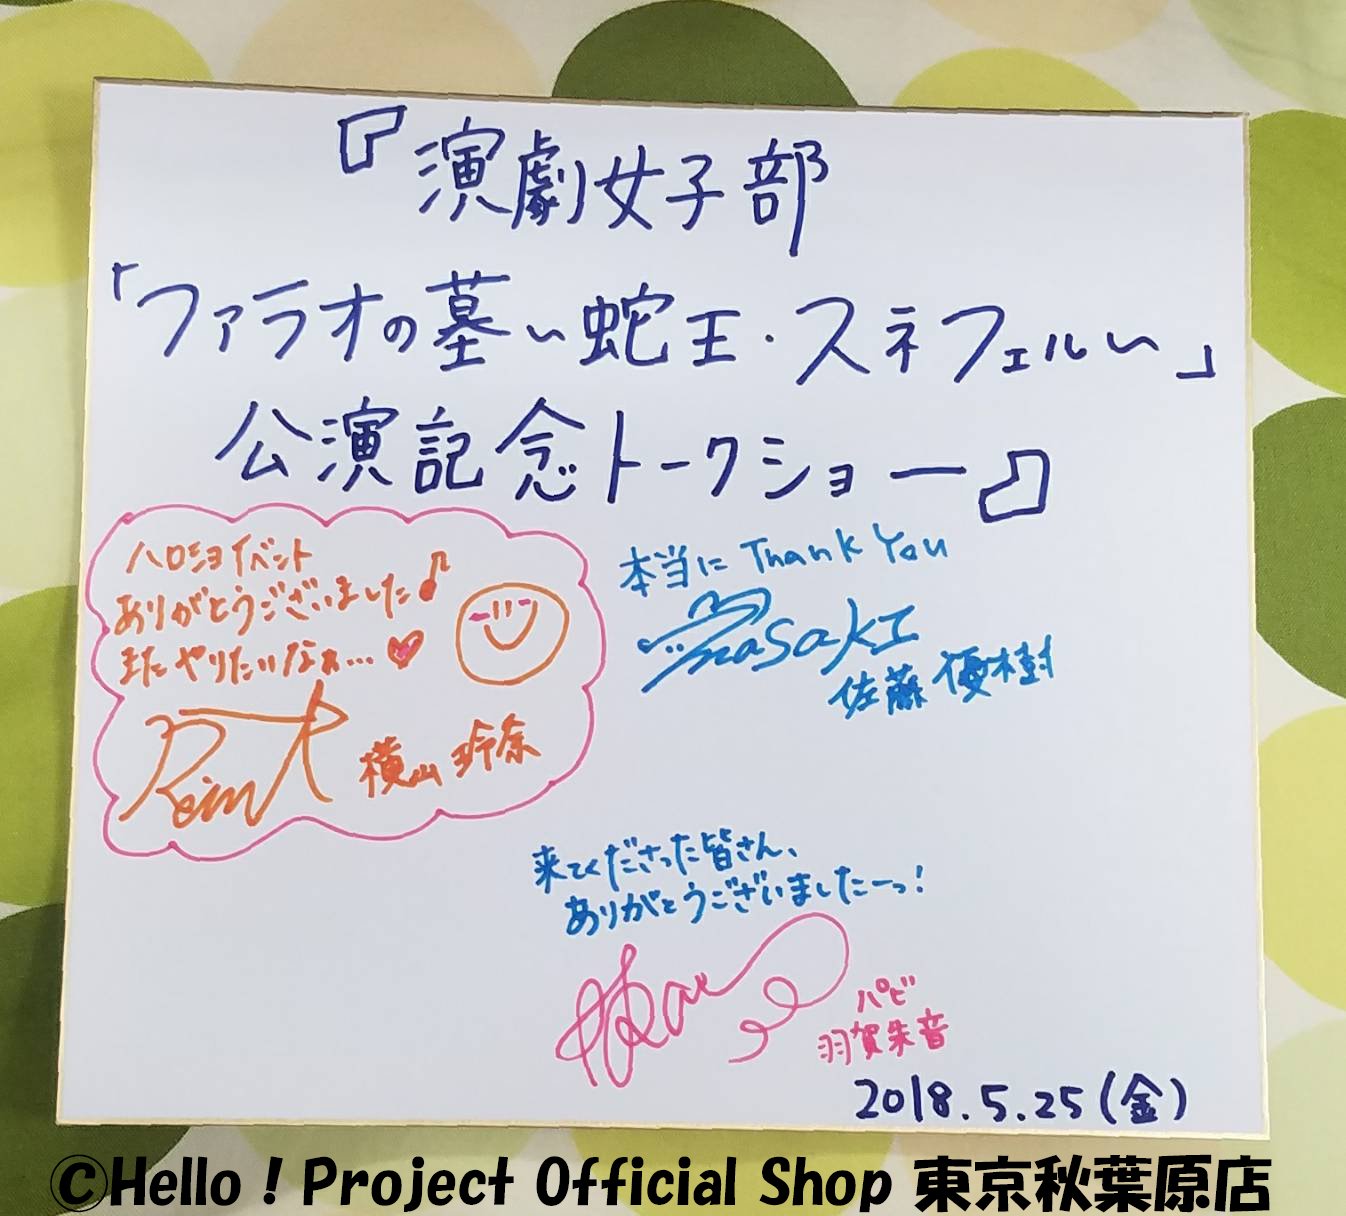 『演劇女子部
「ファラオの墓〜蛇王・スネフェル〜」
公演記念トークショー』
ハロショイベント
ありがとうございました♪
またやりたいなぁ…♥
横山玲奈
本当に Thank You
masaki
佐藤優樹
来てくださった皆さん、
ありがとうございましたーっ!
パピ
羽賀朱音
2018.5.25(金)
©Hello！Project Official Shop 東京秋葉原店